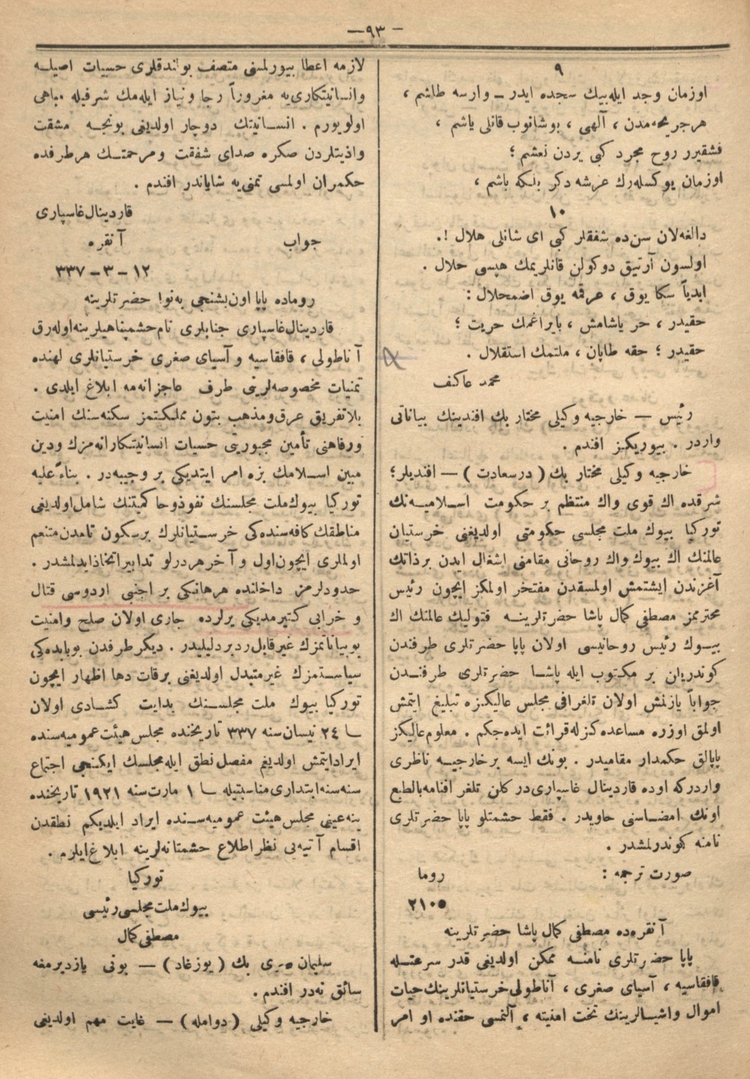 — ٩٣ —
٩
اوزمان وجد ايله بيك سجده ايدر ــ وارسه طاشم ،
هرجريحه‌مدن ، آلهی ، بوشانوب قانلی ياشم ،
فشقيرر روح مجرد کبی يردن نعشم ؛
اوزمان يوکسله‌رك عرشه دکر بلکه باشم ،
١٠
دالغه‌لان سن‌ده شفقلر کبی ای شانلی هلال !.
اولسون آرتيق دوکولن قانلريمك هپسی حلال .
ابدياً سکا يوق ، عرقمه يوق اضمحلال :
حقيدر ، حر ياشامش ، بايراغمك حريت ؛
حقيدر ؛ حقه طاپان ، ملتمك استقلال .
محمد عاکف
رئيس — خارجيه وکيلی مختار بك افندينك بياناتی
واردر . بيوريکز افندم .
خارجيه وکيلی مختار بك ( درسعادت ) — افنديلر ؛
شرقده اك قوی واك منتظم بر حکومت اسلاميه‌نك
تورکيا بيوك ملت مجلسی حکومتی اولديغنی خرستيان
عالمنك اك بيوك واك روحانی مقامنی اشغال ايدن برذاتك
آغزندن ايشتمش اولمسقدن مفتخر اولمکز ايچون رئيس
محترمز مصطفی کمال پاشا حضرتلرينه قتوليك عالمنك اك
بيوك رئيس روحانيسی اولان پاپا حضرتلری طرفندن
کوندريلن بر مکتوب ايله پاشا حضرتلری طرفندن
جواباً يازلمش اولان تلغرافی مجلس عاليکزه تبليغ ايتمش
اولمق اوزره مساعده کزله قرائت ايده‌جکم . معلوم عاليکز
پاپالق حکمدار مقاميدر . بونك ايسه بر خارجيه ناظری
واردرکه اوده قاردينال غاسپاری‌در کلن تلغرافنامه بالطبع
اونك امضاسنی حاويدر . فقط حشمتلو پاپا حضرتلری
نامنه کوندرلمشدر .
صورت ترجمه : روما
٢١٠٥
آنقره‌ده مصطفی کمال پاشا حضرتلرينه
پاپا حضرتلری نامنه ممکن اولديغی قدر سرعتله
قافقاسيه ، آسيای صغری ، آناطولی خرستيانلرينك حيات
اموال واشيالرينك تحت امنيته ، آلنمسی حقنده او امر
لازمه اعطا بيورلمسنی متصف بولندقلری حسيات اصيله
وانسانيتکاری‌يه مغروراً رجا ونياز ايله‌مك شرفيله مباهی
اولويورم . انسانيتك دوچار اولديغی بونجه مشقت
واذيتلردن صکره صدای شفقت ومرحمتك هرطرفده
حکمران اولمسی تمنی‌يه شاياندر افندم .
قاردينال غاسپاری
جواب آنقره
١٢ — ٣ — ٣٣٧
روماده پاپا اون بشنجی به‌نوا حضرتلرينه
قاردينال غاسپاری جنابلری نام حشمتپناهيلرينه اوله‌رق
آناطولی ، قافقاسيه و آسيای صغری خرستيانلری لهنده
تمنيات مخصوصه‌لرينی طرف عاجزانه‌مه ابلاغ ايلدی .
بلاتفريق عرق ومذهب بتون مملکتمز سکنه‌سنك امنيت
ورفاهنی تأمين مجبوريتی حسيات انسانيتکارانه‌مزك ودين
مبين اسلامك بزه امر ايتديکی بر وجيبه‌در . بناءً عليه
تورکيا بيوك ملت مجلسنك نفوذ وحاکميتنك شامل اولديغی
مناطقك کافه‌سنده‌کی خرستيانلرك بر سکون تامدن متنعم
اولملری ايچون اول و آخر هر درلو تدابير اتخاذ ايدلمشدر .
حدودلرمز داخلنده هرهانکی بر اجنبی اردوسی قتال
و خرابی کتيرمديکی يرلرده جاری اولان صلح وامنيت
بو بياناتمزك غير قابل رد بر دليليدر . ديکر طرفدن بوبابده‌کی
سياستمزك غير متبدل اولديغنی برقات دها اظهار ايچون
تورکيا بيوك ملت مجلسنك بدايت کشادی اولان
ــ ٢٤ نيسان سنه ٣٣٧ تاريخنده مجلس هيئت عموميه‌سنده
ايرادايتمش اولديغم مفصل نطق ايله مجلسك ايکنجی اجتماع
سنه‌سنه ابتداری مناسبتيله ــ ١ مارت سنه ١٩٢١ تاريخنده
ينه عينی مجلس هيئت عموميه‌سنده ايراد ايلديکم نطقدن
اقسام آتيه‌يی نظر اطلاع حشمتانه‌لرينه ابلاغ ايلرم .
تورکيا
بيوك ملت مجلسی رئيسی
مصطفی کمال
سليمان سری بك ( يوزغاد ) — بونی يازديرمغه
سائق نه‌در افندم .
خارجيه وکيلی ( دوامله ) — غايت مهم اولديغی